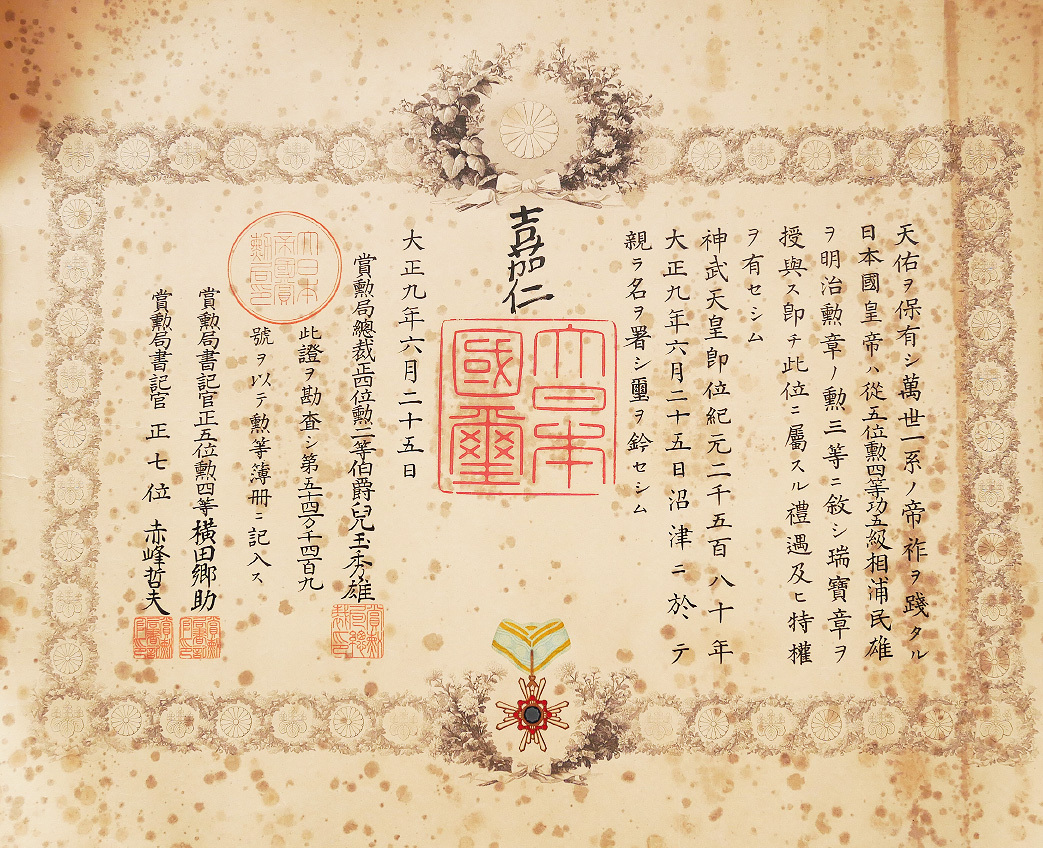 天佑ヲ保有シ萬世一系ノ帝祚ヲ踐タル
日本國皇帝ハ從五位勲四等功五級相浦民雄
ヲ明治勲章ノ勲三等ニ敘シ瑞寶章ヲ
授與ス即チ此位ニ屬スル禮遇及ヒ特權
ヲ有セシム
神武天皇即位紀元二千五百八十年
大正九年六月二十五日沼津ニ於テ
親ラ名ヲ署シ璽ヲ鈐セシム
嘉仁
大日本
國璽
大正九年六月二十五日
賞勲局總裁正四位勲二等伯爵兒玉秀雄
賞勲
局總
裁印
此證ヲ勘査シ第五十四万千四百九
號ヲ以テ勲等簿冊ニ記入ス
大日本
帝國賞
勲局印
賞勲局書記官正五位勲四等橫田郷助
賞勲局書記官正七位赤峰哲夫